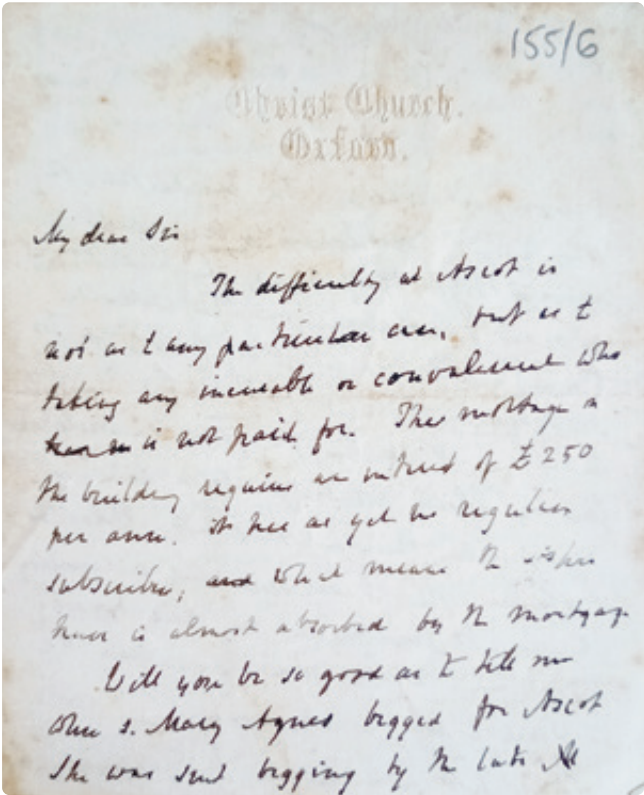 155/6
Christ Church.
Oxford.
My dear Sir
The difficulty at Ascot is
not as t any particular case, but as t
taking any incurable or convalescent who
is not paid for. The mortgage on
the building requires an interest of £250
per ann. It has as yet no regular
subscribers; and what means the sisters
have is almost absorbed by the mortgage.
Will you be so good as t tell me
when S. Mary Agnes begged for Ascot
She was sent begging by the late